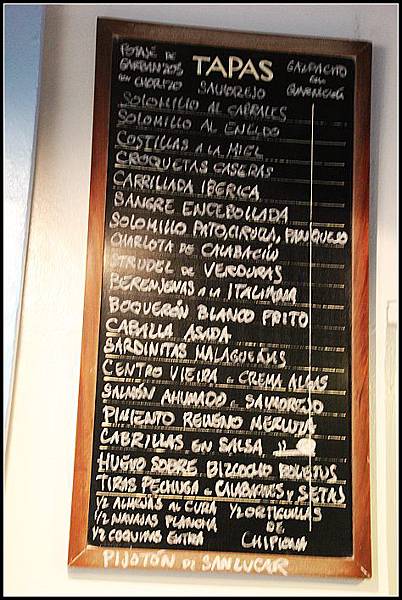 POTAJE DE
GARBANZOS
CON CHORIZO
TAPAS
GAZPACITO
CON
GUARNICIÓN
SALMOREJO
SOLOMILLO AL CABRALES
SOLOMILLO AL ENELDO
COSTILLAS A LA MIEL
CROQUETAS CASERAS
CARRILLADA IBERICA
SANGRE ENCEBOLLADA
SOLOMILLO PATO, CIRUELA, PAN Y QUESO
CHARLOTA DE CALABACÍN
STRUDEL DE VERDURAS
BERENJENAS A LA ITALIANA
BOQUERÓN BLANCO FRITO
CABALLA ASADA
SARDINITAS MALAGUEÑAS
CENTRO VIEIRA C CREMA ALGAS
SALMÓN AHUMADO C SALMOREJO
PIMIENTO RELLENO MERLUZA
CABRILLAS EN SALSA
HUEVO SOBRE BIZCOCHO BOLETUS
TIRAS PECHUGA C CALABACINES Y SETAS
1/2 ALMEJAS AL CURA
1/2 NAVAJAS PLANCHA
1/2 COQUINAS EXTRA
1/2 ORTIGUILLAS
DE
CHIPIONA
PIJOTÓN DE SANLUCAR